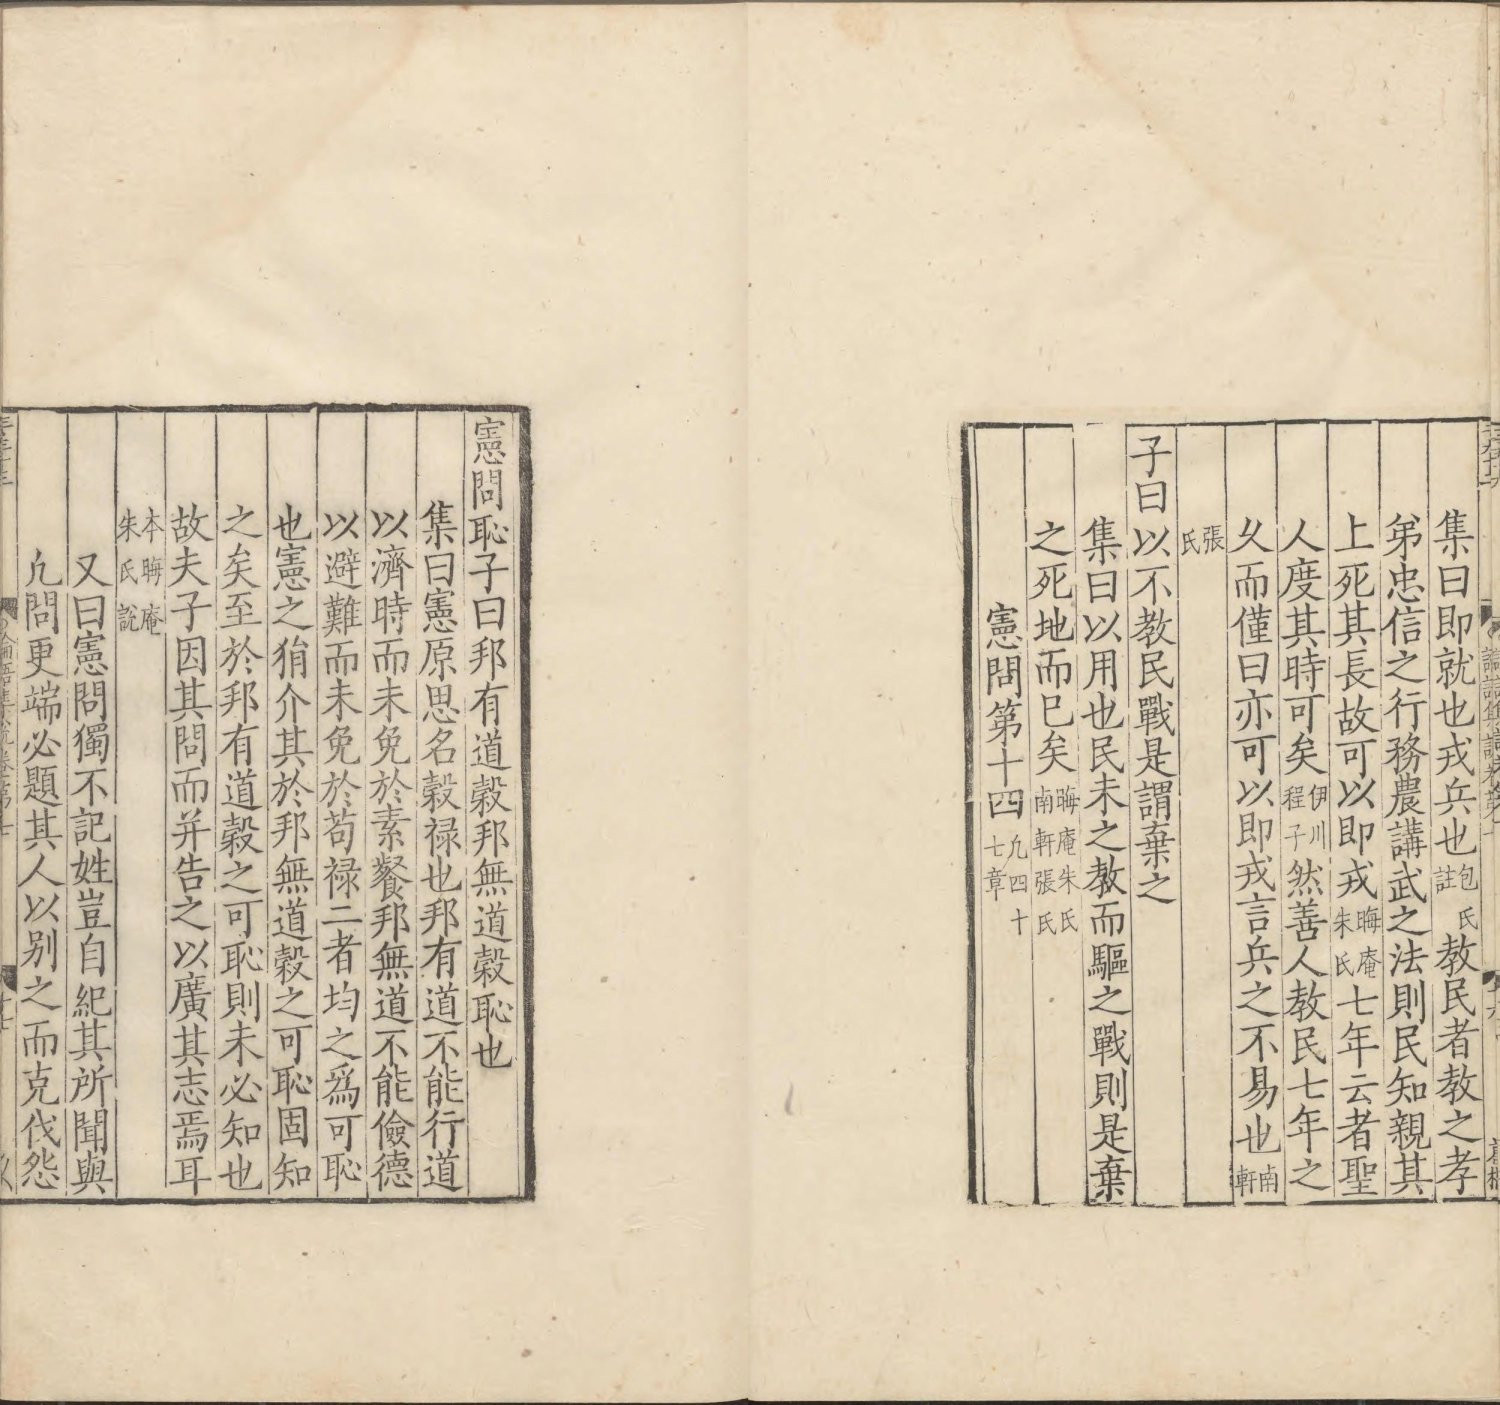 集曰即就也戎兵也包氏註教民者教之孝
弟忠信之行務農講武之法則民知親其
上死其長故可以即戎晦庵朱氏七年云者聖
人度其時可矣伊川程子然善人教民七年之
乆而僅曰亦可以即戎言兵之不易也南軒
張氏
子曰以不教民戰是謂棄之
集曰以用也民未之教而驅之戰則是棄
之死地而已矣晦庵朱氏南軒張氏
憲問第十四凢四十七章
憲問恥子曰邦有道穀邦無道穀恥也
集曰憲原思名穀禄也邦有道不能行道
以濟時而未免於素餐邦無道不能儉德
以避難而未免於苟禄二者均之爲可恥
也憲之狷介其於邦無道穀之可恥固知
之矣至於邦有道穀之可恥則未必知也
故夫子因其問而并告之以廣其志焉耳
本晦庵朱氏說
又曰憲問獨不記姓豈自紀其所聞與
凢問更端必題其人以别之而克伐怨